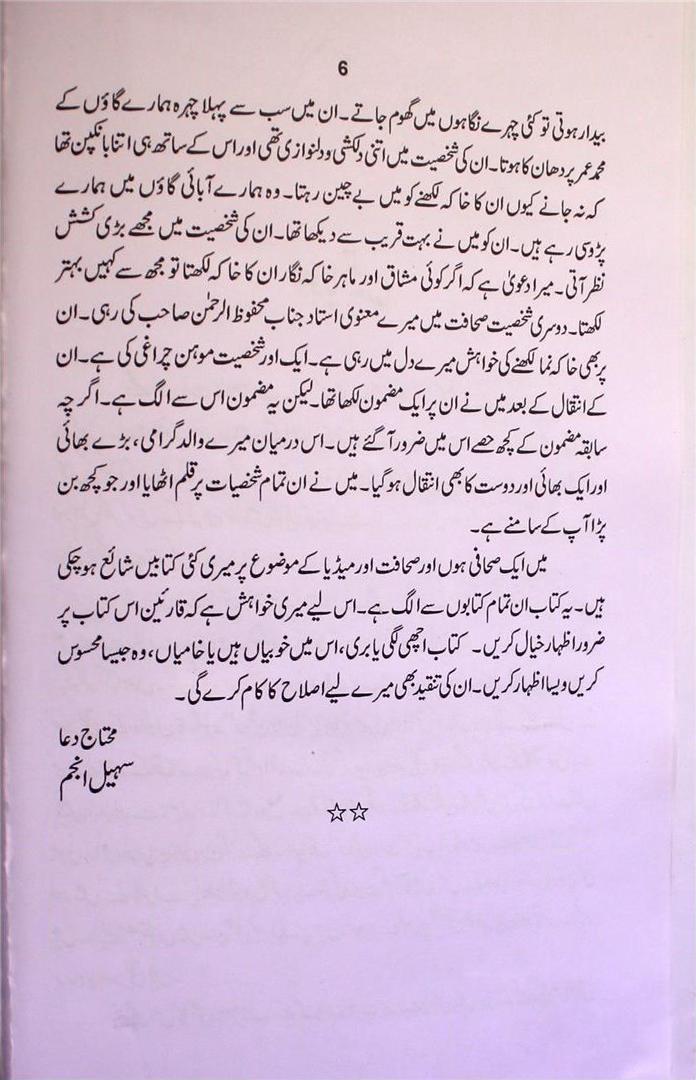 6
بیدار ہوتی تو کئی چہرے نگاہوں میں گھوم جاتے۔ ان میں سب سے پہلا چہرہ ہمارے گاؤں کے
محمد عمر پردھان کا ہوتا۔ ان کی شخصیت میں اتنی دلکشی و دلنوازی تھی اور اس کے ساتھ ہی اتنا بانکپن تھا
کہ نہ جانے کیوں ان کا خاکہ لکھنے کو میں بے چین رہتا۔ وہ ہمارے آبائی گاؤں میں ہمارے
پڑوسی رہے ہیں۔ ان کو میں نے بہت قریب سے دیکھا تھا۔ ان کی شخصیت میں مجھے بڑی کشش
نظر آتی۔ میرا دعویٰ ہے کہ اگر کوئی مشاق اور ماہر خاکہ نگار ان کا خاکہ لکھتا تو مجھ سے کہیں بہتر
لکھتا۔ دوسری شخصیت صحافت میں میرے معنوی استاد جناب محفوظ الرحمٰن صاحب کی رہی۔ ان
پر بھی خاکہ نما لکھنے کی خواہش میرے دل میں رہی ہے۔ ایک اور شخصیت موہن چراغی کی ہے۔ ان
کے انتقال کے بعد میں نے ان پر ایک مضمون لکھا تھا۔ لیکن یہ مضمون اس سے الگ ہے۔ اگرچہ
سابقہ مضمون کے کچھ حصے اس میں ضرور آگئے ہیں۔ اس درمیان میرے والد گرامی، بڑے بھائی
اور ایک بھائی اور دوست کا بھی انتقال ہوگیا۔ میں نے ان تمام شخصیات پر قلم اٹھایا اور جو کچھ بن
پڑا آپ کے سامنے ہے۔
میں ایک صحافی ہوں اور صحافت اور میڈیا کے موضوع پر میری کئی کتابیں شائع ہوچکی
ہیں۔ یہ کتاب ان تمام کتابوں سے الگ ہے۔ اس لیے میری خواہش ہے کہ قارئین اس کتاب پر
ضرور اظہار خیال کریں۔ کتاب اچھی لگی یا بری، اس میں خوبیاں ہیں یا خامیاں، وہ جیسا محسوس
کریں ویسا اظہار کریں۔ ان کی تنقید بھی میرے لیے اصلاح کا کام کرے گی۔
محتاج دعا
سہیل انجم
☆☆